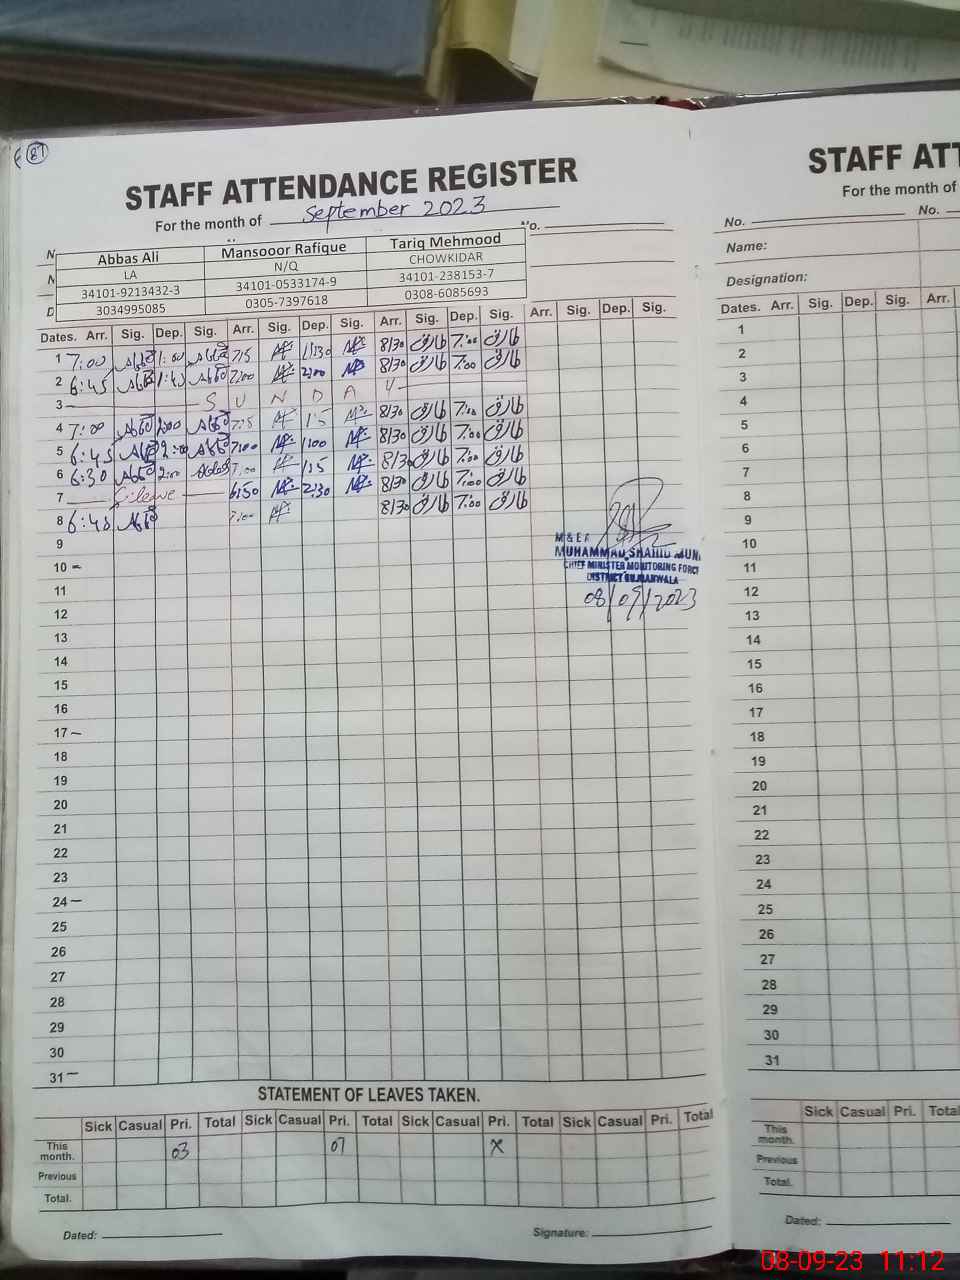 87
STAFF ATTENDANCE REGISTER
For the month of September 2023
No.
Abbas Ali Mansooor Rafique Tariq Mehmood
LA N/Q CHOWKIDAR
34101-9213432-3 34101-0533174-9 34101-238153-7
3034995085 0305-7397618 0308-6085693
Dates. Arr. Sig. Dep. Sig. Arr. Sig. Dep. Sig. Arr. Sig. Dep. Sig. Arr. Sig. Dep. Sig.
1 7:00 عباس 1:00 عباس 7:15 1:30 8/30 طارق 7:00 طارق
2 6:45 عباس 1:45 عباس 7:00 2:00 8/30 طارق 7:00 طارق
3 S U N D A Y
4 7:00 عباس 2:00 عباس 7:15 1:15 8/30 طارق 7:00 طارق
5 6:45 عباس 2:00 عباس 7:00 1:00 8/30 طارق 7:00 طارق
6 6:30 عباس 2:00 عباس 7:00 1:15 8/30 طارق 7:00 طارق
7 C. leave 6:50 2:30 8/30 طارق 7:00 طارق
8 6:45 عباس 7:00 8/30 طارق 7:00 طارق
9
10
11
12
13
14
15
16
17
18
19
20
21
22
23
24
25
26
27
28
29
30
31
MUHAMMAD SHAHID MUN
CHIEF MINISTER MONITORING FORC
DISTRICT GUJRANWALA
08/09/2023
STATEMENT OF LEAVES TAKEN.
Sick Casual Pri. Total Sick Casual Pri. Total Sick Casual Pri. Total Sick Casual Pri. Total
This month. 03 07 x
Previous
Total.
Dated: Signature:
STAFF ATT
For the month of
No. No.
Name:
Designation:
Dates. Arr. Sig. Dep. Sig. Arr.
1
2
3
4
5
6
7
8
9
10
11
12
13
14
15
16
17
18
19
20
21
22
23
24
25
26
27
28
29
30
31
Sick Casual Pri. Total
This month.
Previous
Total.
Dated:
08-09-23 11:12